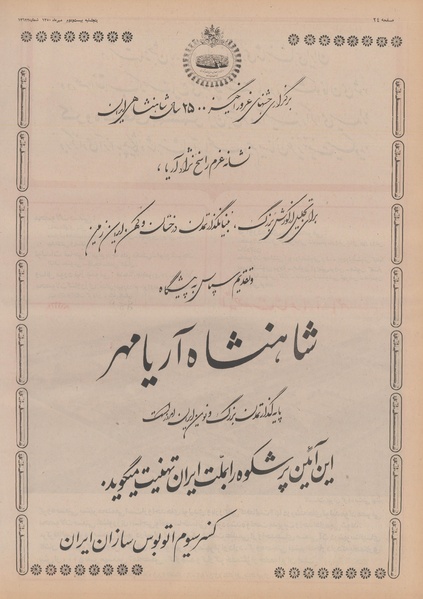 صفحه ۲٤
برگزاری جشنهای غرورانگیز ۲۵۰۰ سال شاهنشاهی ایران
نشانه عزم راسخ نژاد آریا ،
برای تجلیل از کورش بزرگ، بنیانگذار تمدن درخشان و کهن ایران زمین
و تقدیم سپاس به پیشگاه
شاهنشاه آریامهر
پایه‌گذار تمدن بزرگ و نوین ایران
این آئین پرشکوه را بملت ایران تهنیت میگوید.
کنسرسیوم اتوبوس سازان ایران